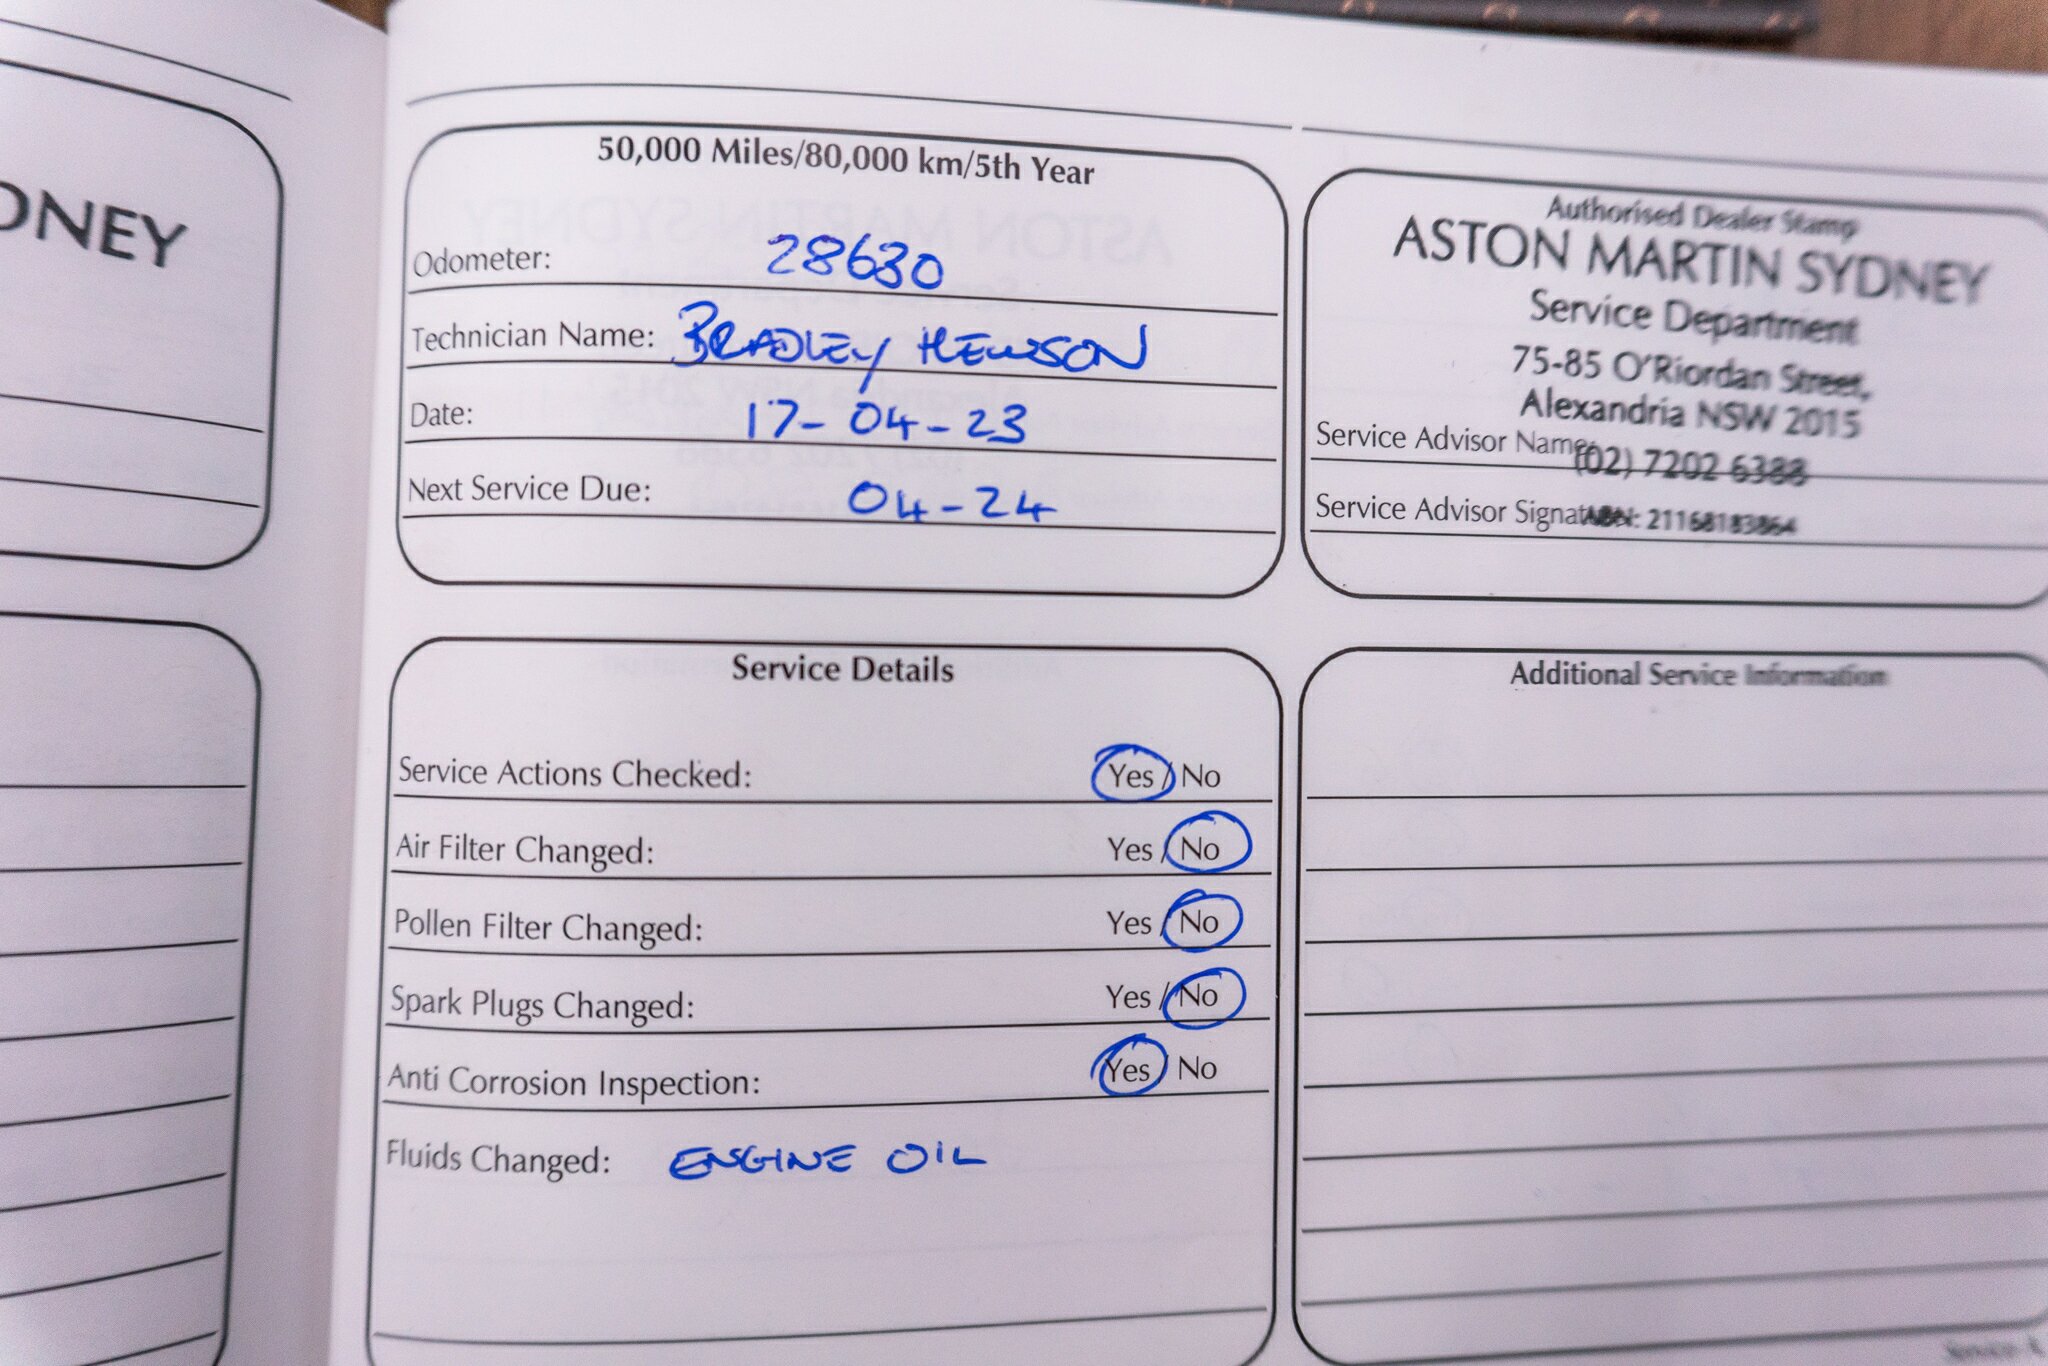 DNEY
50,000 Miles/80,000 km/5th Year
Odometer: 28630
Technician Name: BRADLEY HEWSON
Date: 17-04-23
Next Service Due: 04-24
Authorised Dealer Stamp
ASTON MARTIN SYDNEY
Service Department
75-85 O'Riordan Street,
Alexandria NSW 2015
Service Advisor Name:
(02) 7202 6388
Service Advisor Signature:
ABN: 21168183864
Service Details
Service Actions Checked: Yes / No
Air Filter Changed: Yes / No
Pollen Filter Changed: Yes / No
Spark Plugs Changed: Yes / No
Anti Corrosion Inspection: Yes / No
Fluids Changed: ENGINE OIL
Additional Service Information